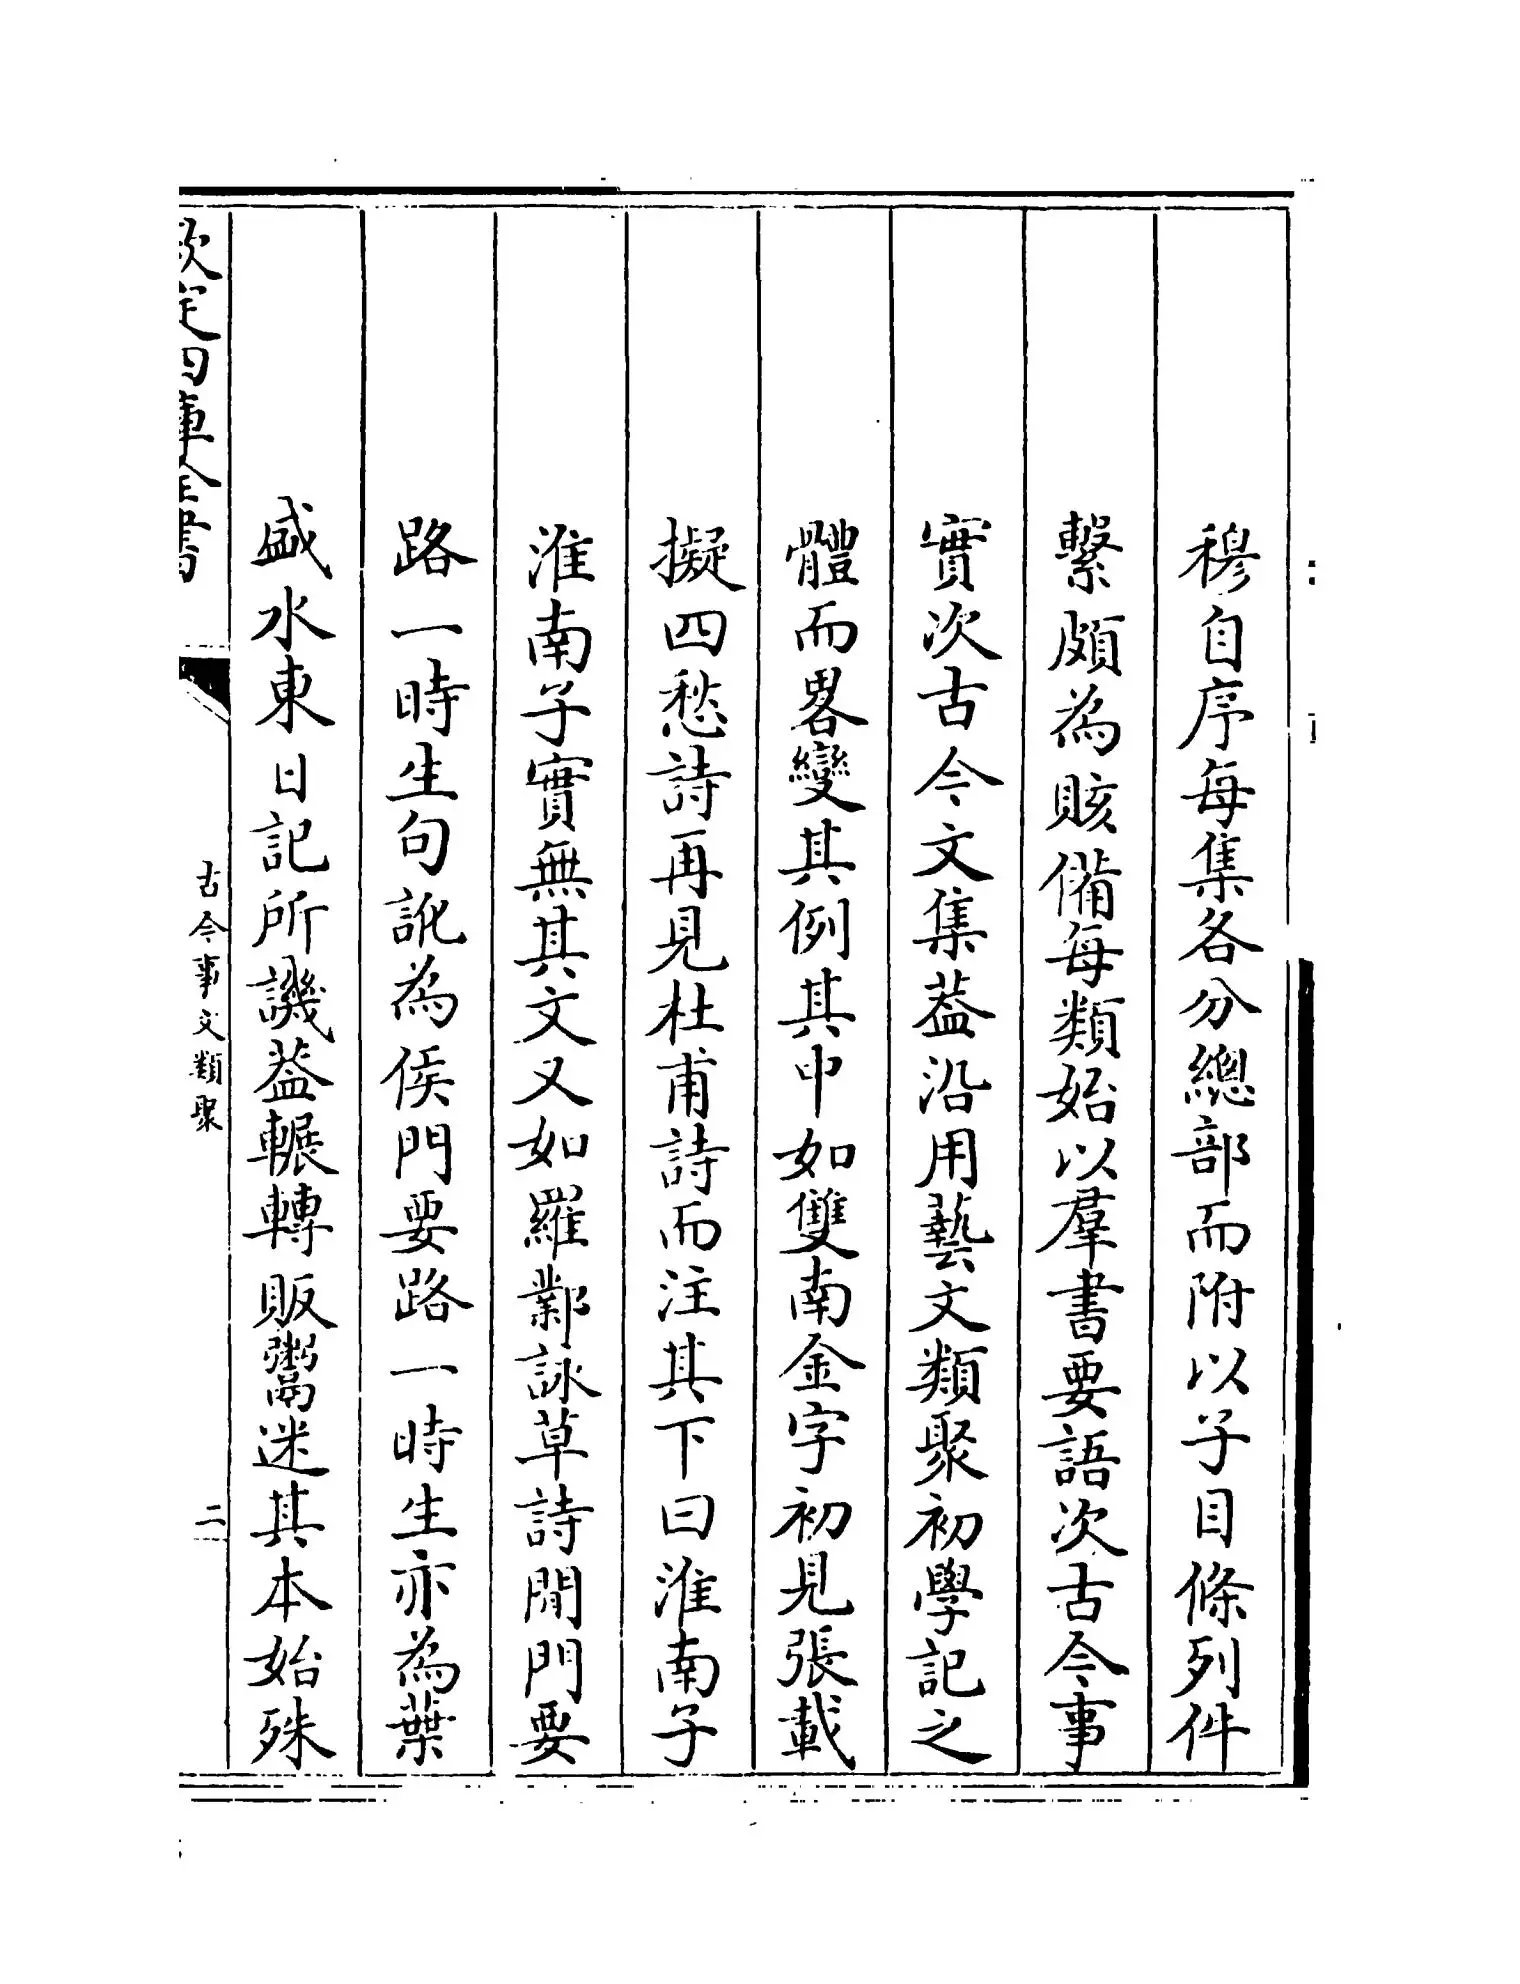 穆自序每集各分總部而附以子目條列件
繫頗為賅備每類始以羣書要語次古今事
實次古今文集葢沿用藝文類聚初學記之
體而畧變其例其中如雙南金字初見張載
擬四愁詩再見杜甫詩而注其下曰淮南子
淮南子實無其文又如羅鄴詠草詩閒門要
路一時生句訛為侯門要路一時生亦為葉
盛水東日記所譏葢輾轉販鬻迷其本始殊
欽定四庫全書
古今事文類聚
二